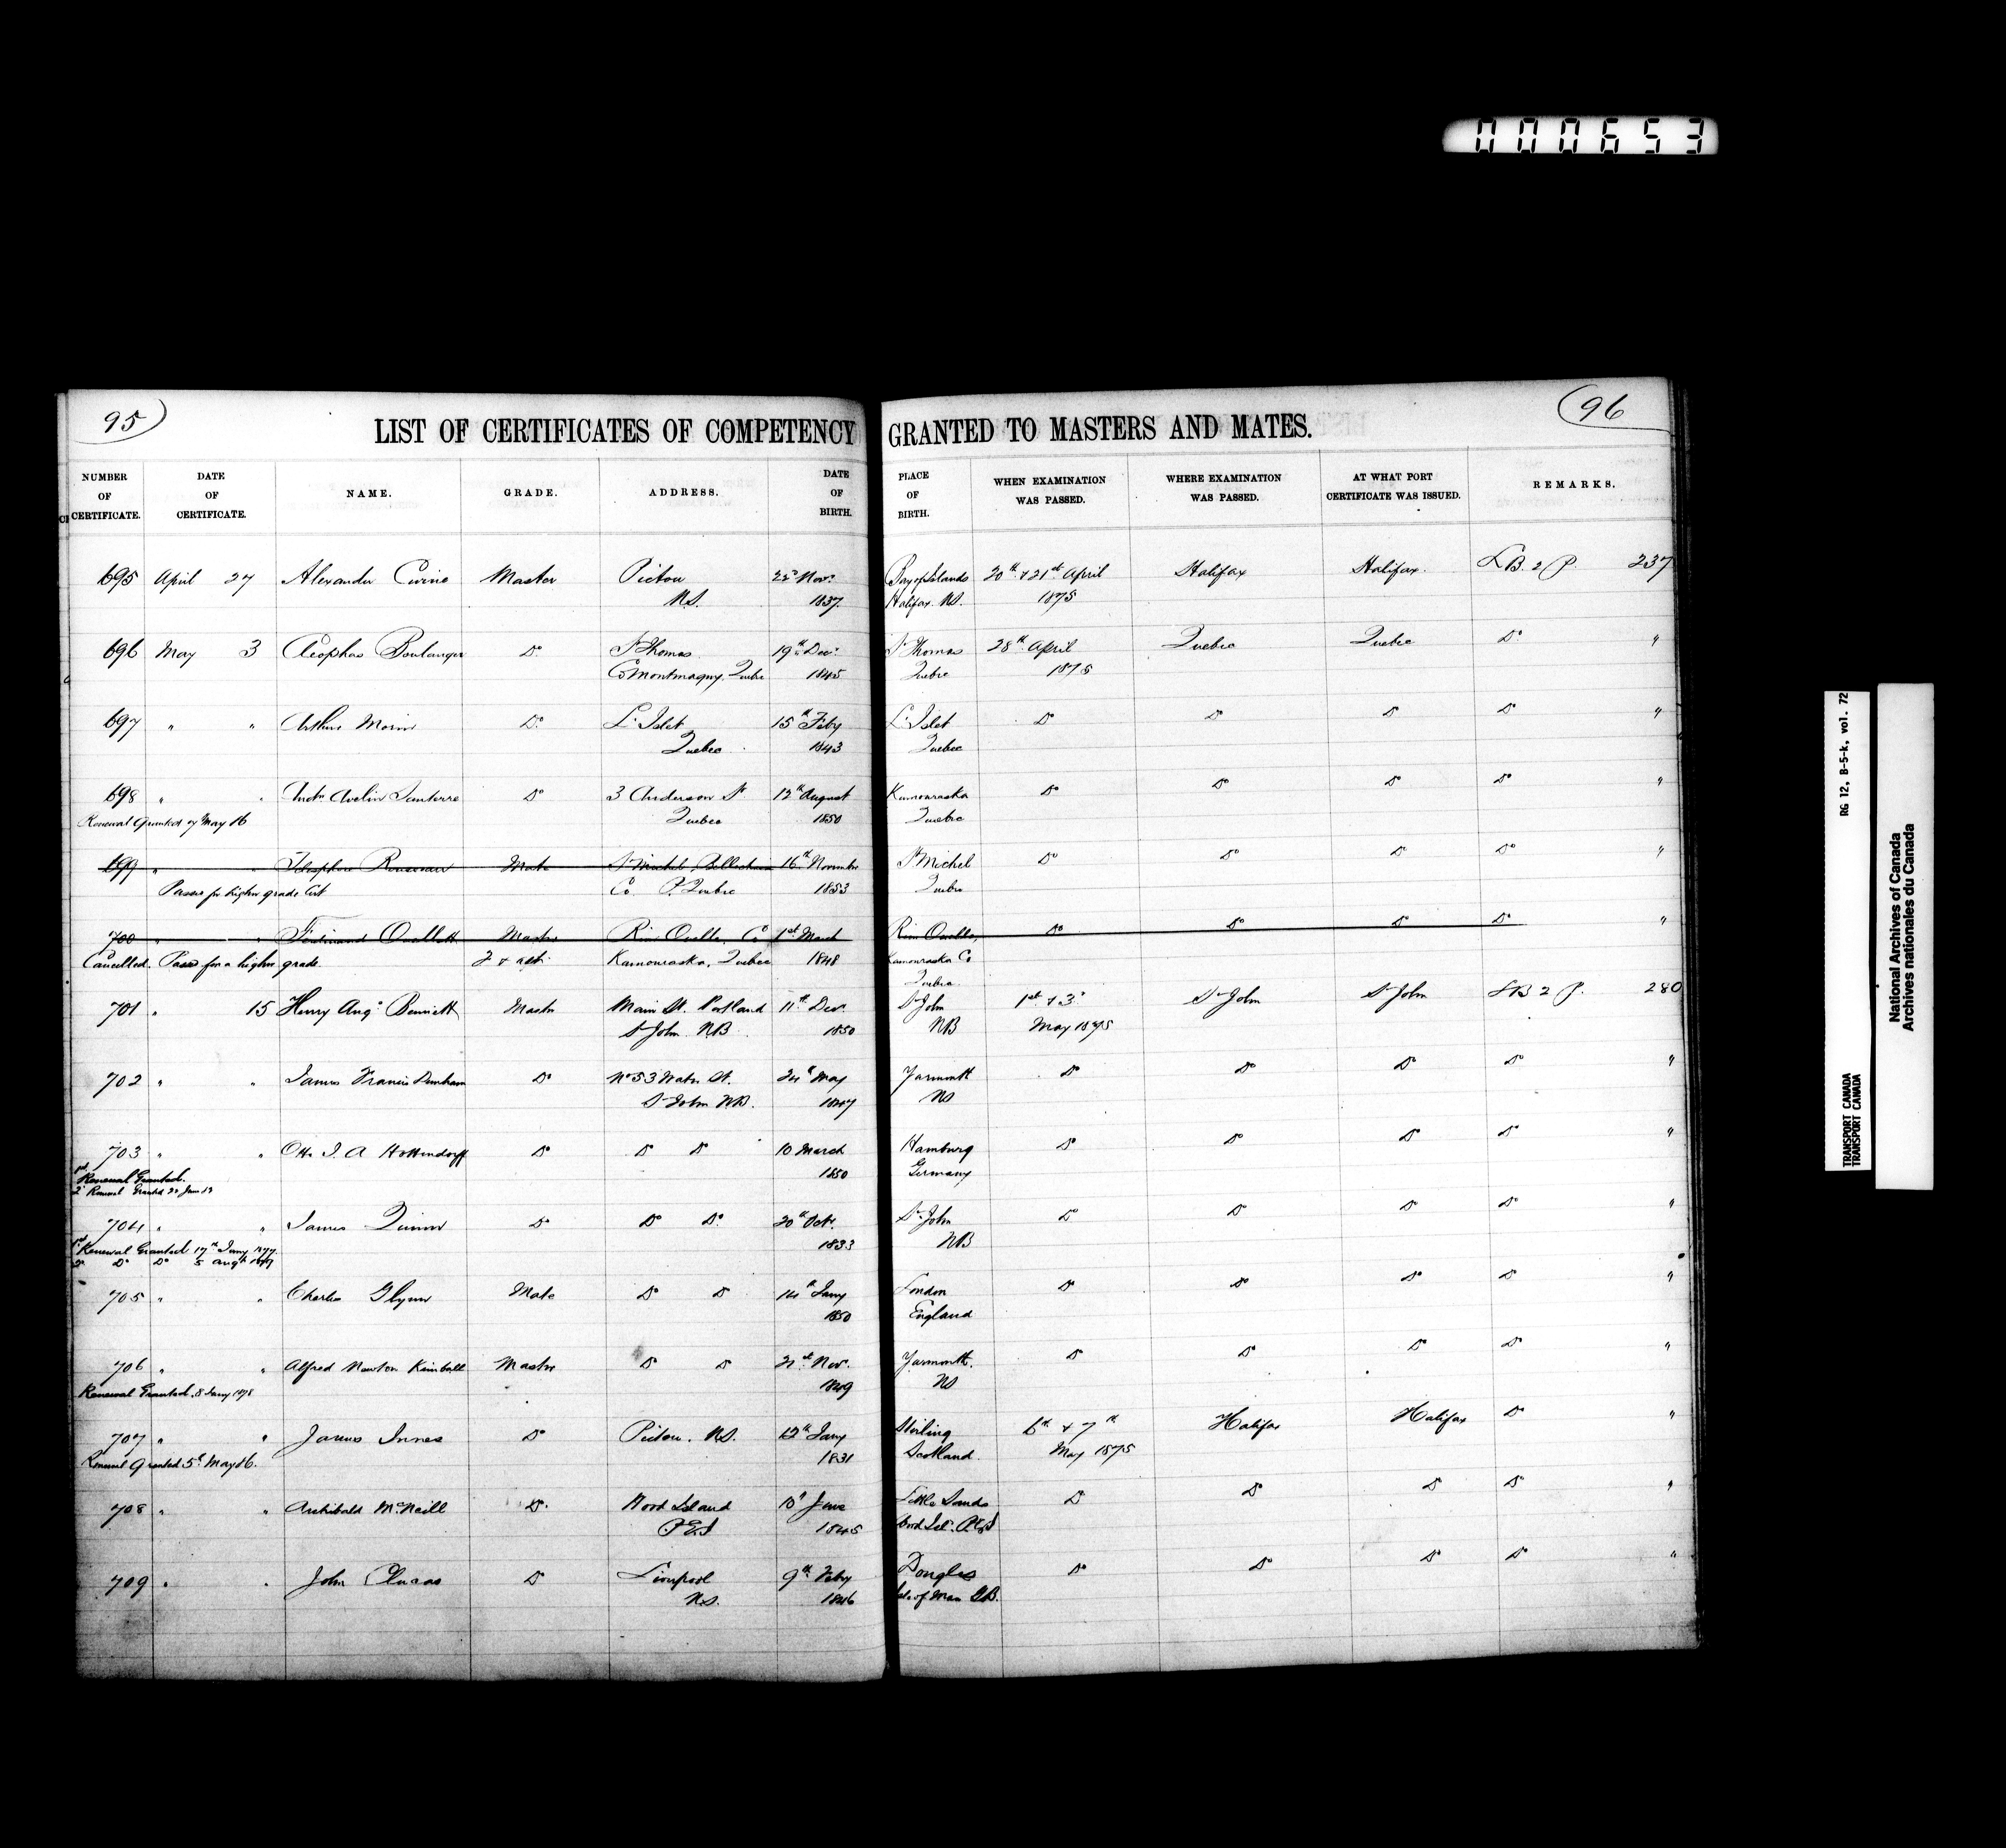 000653
95
96
LIST OF CERTIFICATES OF COMPETENCY GRANTED TO MASTERS AND MATES.
NUMBER OF CERTIFICATE. DATE OF CERTIFICATE. NAME. GRADE. ADDRESS. DATE OF BIRTH. PLACE OF BIRTH. WHEN EXAMINATION WAS PASSED. WHERE EXAMINATION WAS PASSED. AT WHAT PORT CERTIFICATE WAS ISSUED. REMARKS.
695 April 27 Alexander Master Pictou 22d Novr. Bay of Islands 20th & 21st April Halifax Halifax. LB. 2 P. 237
N.S. 1837. Halifax. N.S. 1875
696 May 3 Cleophas Boulanger Do St Thomas 19th Decr. St Thomas 28th April Quebec Quebec Do "
Co Montmagny, Quebec 1845 Quebec 1875
697 " " Arthur Morin Do L'Islet 15th Feby L'Islet Do Do Do Do "
Quebec 1843 Quebec
698 " " Avelin Santerre Do 3 Anderson St 12th August Kamouraska Do Do Do Do "
Renewal Granted 7 May 86 Quebec 1850 Quebec
699 " " Telesphore Mate St Michel, Bellechasse 16th November St Michel Do Do Do Do "
Passed for higher grade Cert Co P. Quebec 1853 Quebec
700 " " Ferdinand Ouellett Master Riv Ouelle, Co 1st March Riv Ouelle, Do Do Do Do "
Cancelled. Passed for a higher grade. Kamouraska, Quebec 1848 Kamouraska Co
Quebec
701 " 15 Henry Augs Bennett Master Main St. Portland 11th Decr. St John 1st & 3d St John St John LB 2 P. 280
St John. N.B. 1850 NB May 1875
702 " " James Francis Dunham Do No 53 Water St. 24th May Yarmouth Do Do Do Do "
St John N.B. 1847 NS
703 " " Otto J. A Hottendorff Do Do Do 10 March Hamburg Do Do Do Do "
1st Renewal Granted. 1850 Germany
2d Renewal Granted
704 " " James Quinn Do Do Do 20th Oct. St John Do Do Do Do "
1st Renewal Granted 17th Jany 1877. 1833 NB
2d Do Do 5 Augt
705 " " Charles Glynn Mate Do Do 14th Jany London Do Do Do Do "
1850 England
706 " " Alfred Newton Kimball Master Do Do 21st Nov. Yarmouth. Do Do Do Do "
Renewal Granted. 8 Jany 1878 1849 NS
707 " " James Innes Do Pictou. N.S. 12th Jany Stirling 6th & 7th Halifax Halifax Do "
Renewal Granted 5th May 86. 1831 Scotland. May 1875
708 " " Archibald McNeill Do Wood Island June Little Sands Do Do Do Do "
PEI 1845 Wood Isl. P.E.I
709 " " John Clucas Do Liverpool 9th Feby Douglas Do Do Do Do "
N.S. 1846 Isle of Man G.B.
RG 12, B-5-k, vol. 72
TRANSPORT CANADA
TRANSPORT CANADA
National Archives of Canada
Archives nationales du Canada